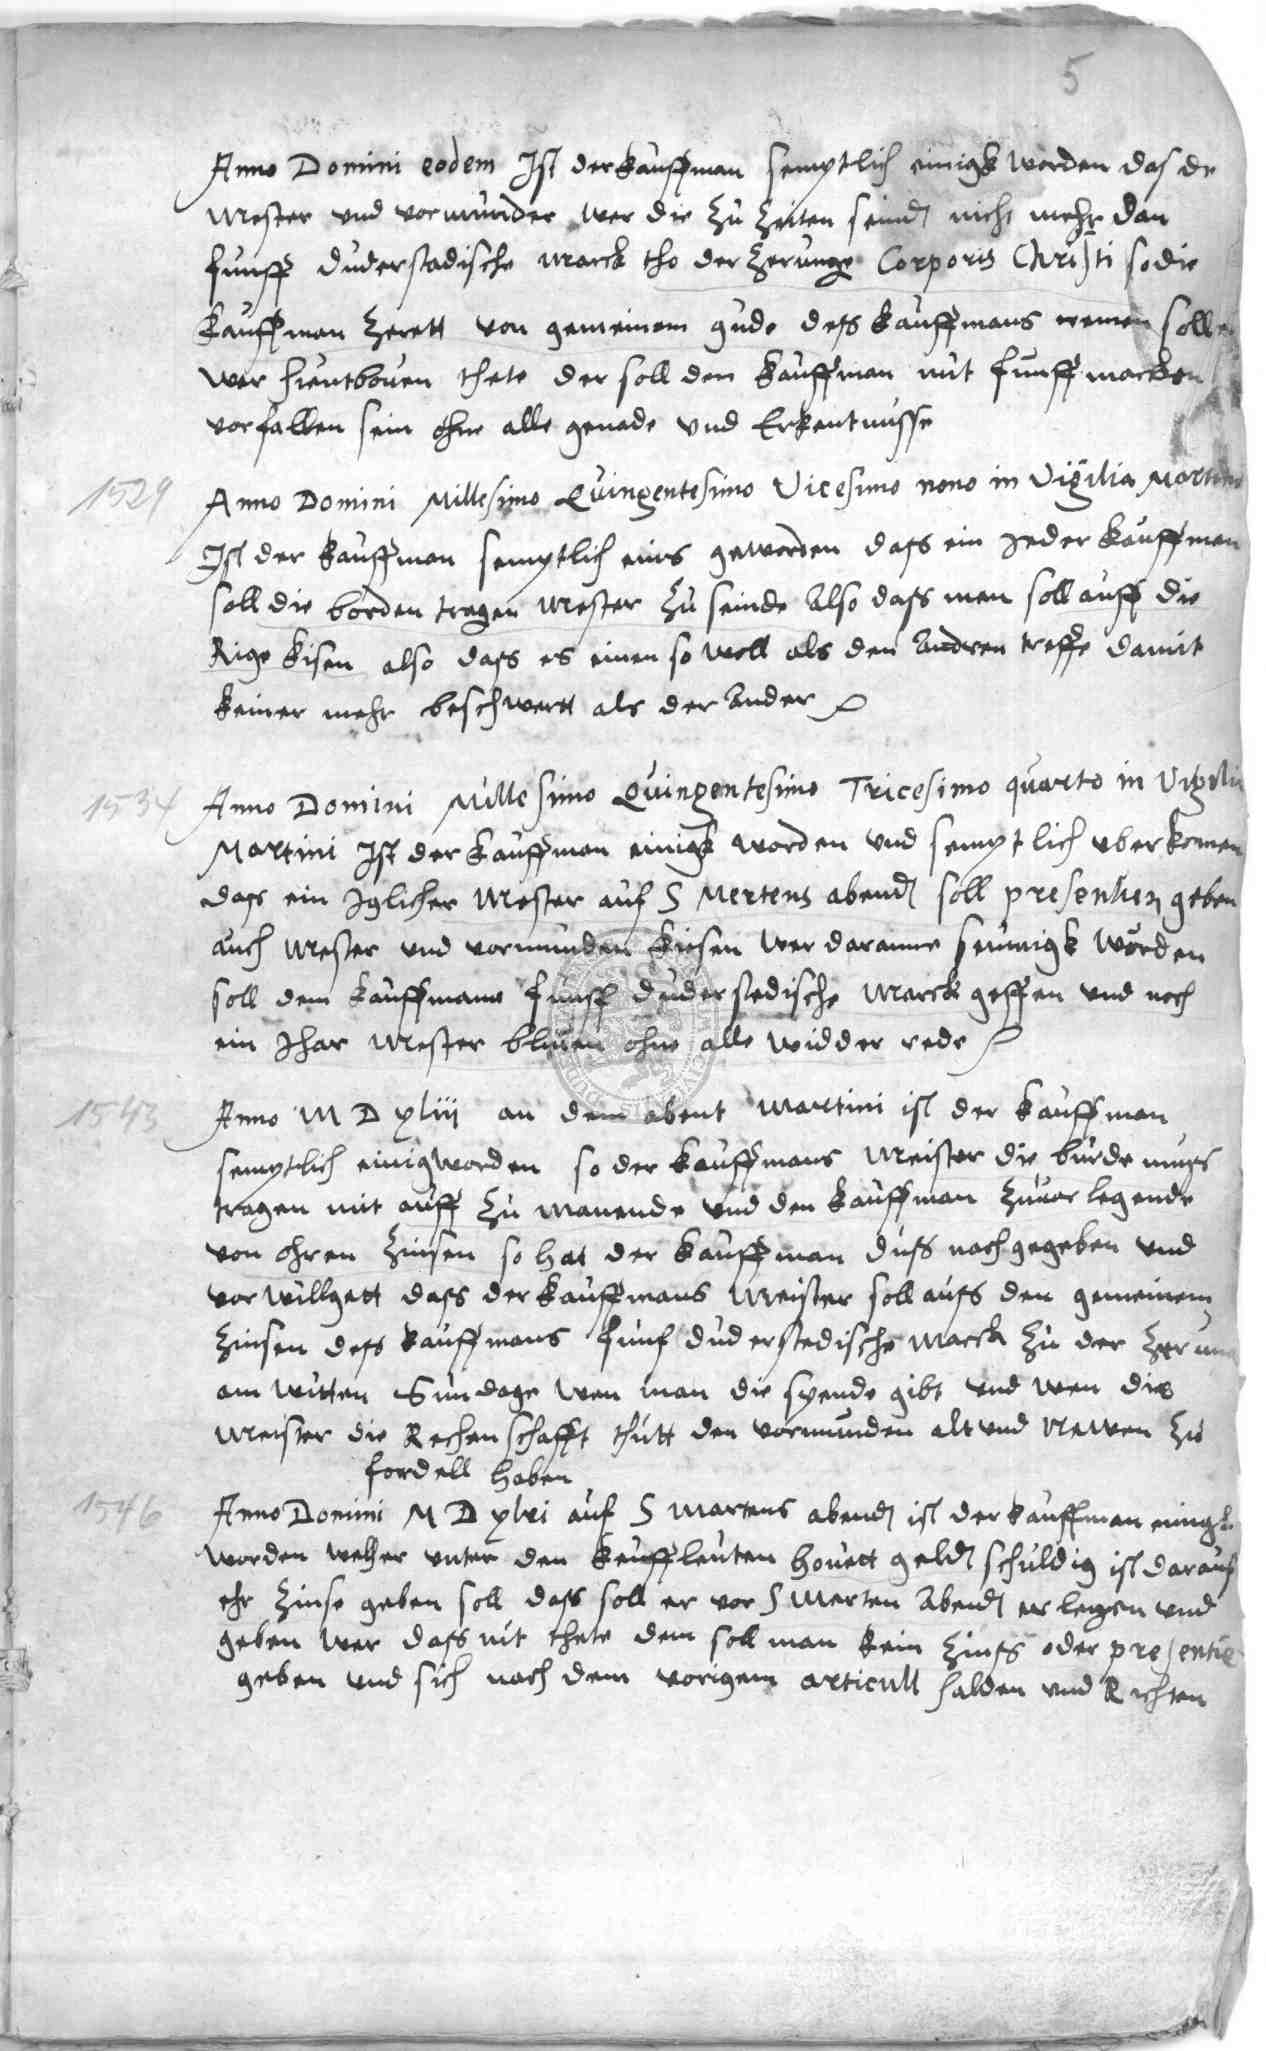 5
Anno Domini eodem Ist der kauffman semptlich einigk worden das de
Mester vnd vormunder wer die zu zeiten seind nicht mehr dan
funff duderstadische marck tho der zerunge Corporis Christi so die
kauffman zerett von gemeinem gude dess kauffmans nemen sollen
wer hientboven thete der soll den kauffman mit funff marcken
vorfallen sein ohne alle genade vnd Erkentnusse
1529
Anno Domini Millesimo Quingentesimo Vicesimo nono in Vigilia Martini
Ist der kauffman semptlich eins geworden dass ein Jeder kauffman
soll die borden tragen Mester zu seinde Also dass men soll auff die
Rige kisen also dass es einen so woll als den Andren treffe damit
keiner mehr beschwertt als der Ander
1534
Anno Domini Millesimo Quingentesimo Tricesimo quarto in Vigilia
Martini Ist der kauffman einigk worden vnd semptlich vberkomen
dass ein Iglicher Mester auf S Mertens abend soll presentien geben
auch Mester vnd vormunden kiesen wer daranne seumigk worden
soll dem kauffmanne funff duderstedische Marck geffen vnd noch
ein Jhar Mester bliuen ohne alle widder rede
1543
Anno M D xliij an dem abent Martini ist der kauffman
semptlich einigworden so der kauffmans Meister die burde muss
tragen mit auff zu manende vnd den kauffman zuuorlegende
von ohren zinsen so hat der kauffman duss nachgegeben vnd
vorwillgett dass der kauffmans Meister soll auss den gemeinem
zinsen dess kauffmans funf duderstedische Marck zu der zerung
am witten Sundage wen man die spende gibt vnd wen die
Meister die Rechenschafft thutt den vormunden alt vnd Newen zu
fordell haben
1546
Anno Domini M D xlvi auf S Martens abend ist der kauffman einigk
worden welher vnter den kauffleuten houett geld schuldig ist darauf
ehr zinse geben soll dass soll er vor S Merten Abend erlegen vnd
geben wer dass nit thete dem soll man kein zinss oder presentie
geben vnd sich nach dem vorigem articull halden vnd Richten